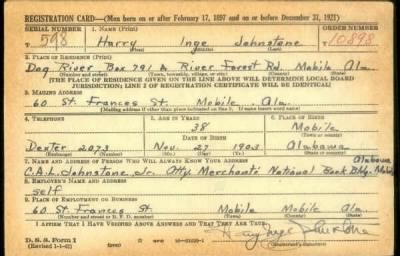 REGISTRATION CARD—(Men born on or after February 17, 1897 and on or before December 31, 1921)
SERIAL NUMBER 1. NAME (Print) ORDER NUMBER
598 Harry Inge Johnstone 10898
(First) (Middle) (Last)
2. PLACE OF RESIDENCE (Print)
Dog River Box 791 A River Forest Rd. Mobile Ala.
(Number and street) (Town, township, village, or city) (County) (State)
[THE PLACE OF RESIDENCE GIVEN ON THE LINE ABOVE WILL DETERMINE LOCAL BOARD
JURISDICTION; LINE 2 OF REGISTRATION CERTIFICATE WILL BE IDENTICAL]
3. MAILING ADDRESS
60 St. Frances St. Mobile, Ala.
[Mailing address if other than place indicated on line 2. If same insert word same]
4. TELEPHONE 5. AGE IN YEARS 6. PLACE OF BIRTH
38 Mobile
DATE OF BIRTH (Town or county)
Dexter 2073 Nov. 27 1903 Alabama
(Exchange) (Number) (Mo.) (Day) (Yr.) (State or country)
7. NAME AND ADDRESS OF PERSON WHO WILL ALWAYS KNOW YOUR ADDRESS Alabama
C.A.L. Johnstone Jr. Atty. Merchants National Bank Bldg. Mobile
8. EMPLOYER'S NAME AND ADDRESS
self
9. PLACE OF EMPLOYMENT OR BUSINESS
60 St. Frances St. Mobile Mobile Ala.
(Number and street or R. F. D. number) (Town) (County) (State)
I AFFIRM THAT I HAVE VERIFIED ABOVE ANSWERS AND THAT THEY ARE TRUE.
D. S. S. Form 1 Harry Inge Johnstone
(Revised 1-1-42) (Registrant's signature)